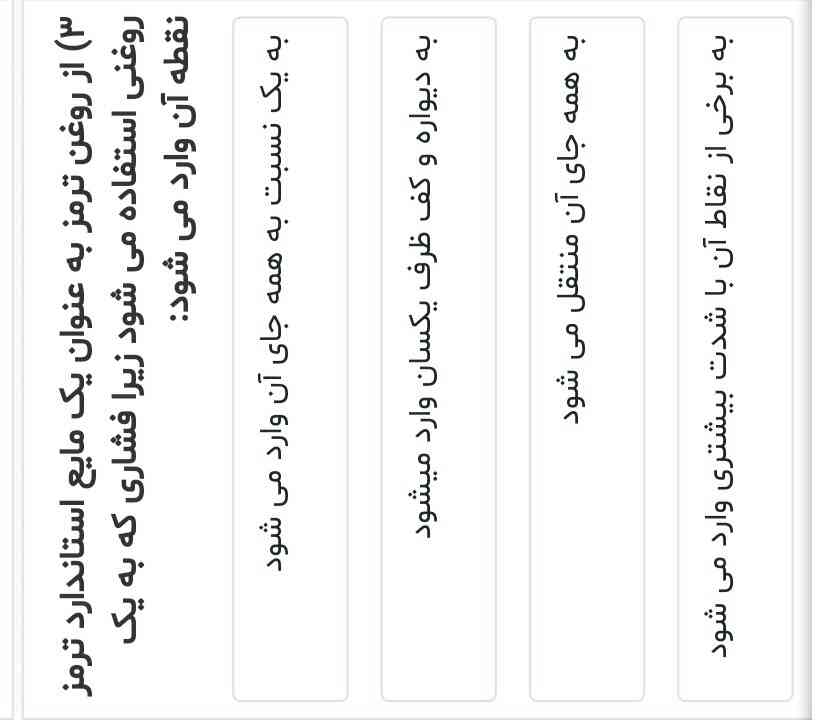 ۳) از روغن ترمز به عنوان یک مایع استاندارد ترمز
روغنی استفاده می شود زیرا فشاری که به یک
نقطه آن وارد می شود:
به یک نسبت به همه جای آن وارد می شود
به دیواره و کف ظرف یکسان وارد میشود
به همه جای آن منتقل می شود
به برخی از نقاط آن با شدت بیشتری وارد می شود